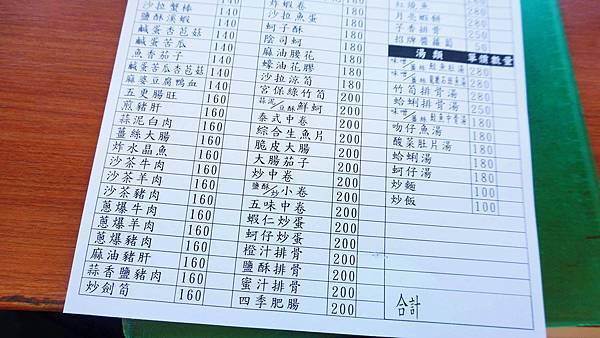 沙拉蟹棒 140
鹽酥溪蝦 140
鹹蛋杏苞菇 140
鹹蛋苦瓜 140
魚香茄子 140
鹹蛋苦瓜杏苞菇 140
麻婆豆腐鴨血 140
五更腸旺 160
煎豬肝 160
蒜泥白肉 160
薑絲大腸 160
炸水晶魚 160
沙茶牛肉 160
沙茶羊肉 160
沙茶豬肉 160
蔥爆牛肉 160
蔥爆羊肉 160
蔥爆豬肉 160
麻油豬肝 160
蒜香鹽豬肉 160
炒劍筍 160
炸蝦卷 180
沙拉魚蛋 180
蚵子酥 180
陰司蚵 180
麻油腰花 180
蠔油花膠 180
沙拉涼筍 180
宮保綠竹筍 200
蒜泥/豆酥 鮮蚵 200
泰式中卷 200
綜合生魚片 200
脆皮大腸 200
大腸茄子 200
炒中卷 200
鹽酥/炒 小卷 200
五味中卷 200
蝦仁炒蛋 200
蚵仔炒蛋 200
橙汁排骨 200
鹽酥排骨 200
蜜汁排骨 200
四季肥腸 200
紅燒魚
月亮蝦餅 250
子香排骨 280
招牌醬蘿蔔 450
湯類 單價 數量
味噌/薑絲 鮭魚肚湯 280
味噌/薑絲
竹筍排骨湯 280
蛤蜊排骨湯 250
味噌/薑絲 鮭魚中骨湯 180
吻仔魚湯 180
酸菜肚片湯 180
蛤蜊湯 180
蚵仔湯 180
炒麵 100
炒飯 100
合計